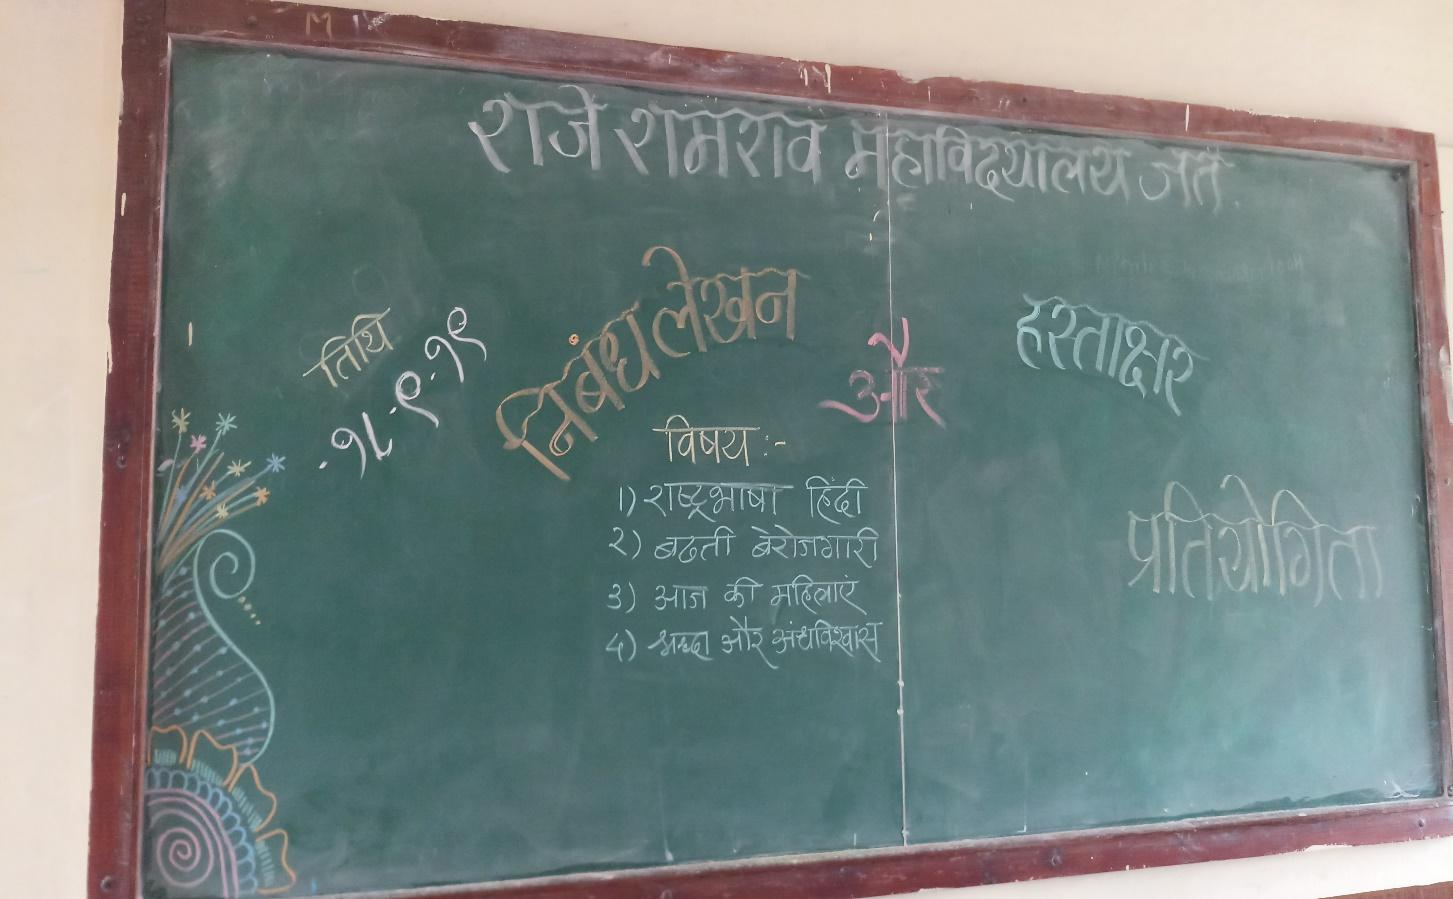 राजे रामराव महाविदयालय जत
तिथि
१८-९-१९
निबंध लेखन
और
हस्ताक्षर
प्रतियोगिता
विषय :-
१) राष्ट्रभाषा हिंदी
२) बढती बेरोजगारी
३) आज की महिलाएं
४) श्रध्दा और अंधविश्वास